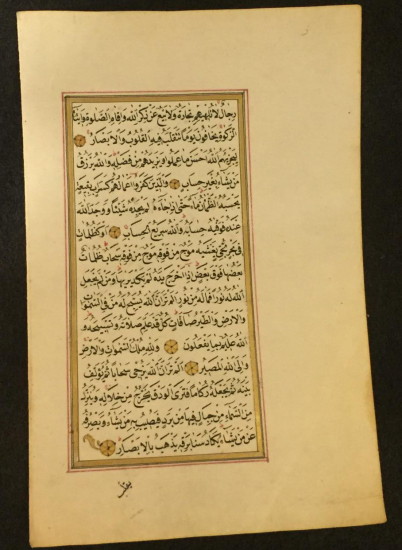 رجال لا تلهيهم تجارة ولا بيع عن ذكر الله واقام الصلوة وايتاء
الزكوة يخافون يوما تتقلب فيه القلوب والابصار
ليجزيهم الله احسن ما عملوا ويزيدهم من فضله والله يرزق
من يشاء بغير حساب والذين كفروا اعمالهم كسراب بقيعة
يحسبه الظمآن ماء حتى اذا جاءه لم يجده شيئا ووجد الله
عنده فوفيه حسابه والله سريع الحساب او كظلمات
في بحر لجي يغشيه موج من فوقه موج من فوقه سحاب ظلمات
بعضها فوق بعض اذا اخرج يده لم يكد يريها ومن لم يجعل
الله له نورا فما له من نور الم تر ان الله يسبح له من في السموات
والارض والطير صافات كل قد علم صلاته وتسبيحه و
الله عليم بما يفعلون ولله ملك السموات والارض
والى الله المصير الم تر ان الله يزجي سحابا ثم يؤلف
بينه ثم يجعله ركاما فترى الودق يخرج من خلاله وينزل
من السماء من جبال فيها من برد فيصيب به من يشاء ويصرفه
عن من يشاء يكاد سنا برقه يذهب بالابصار
يقلب